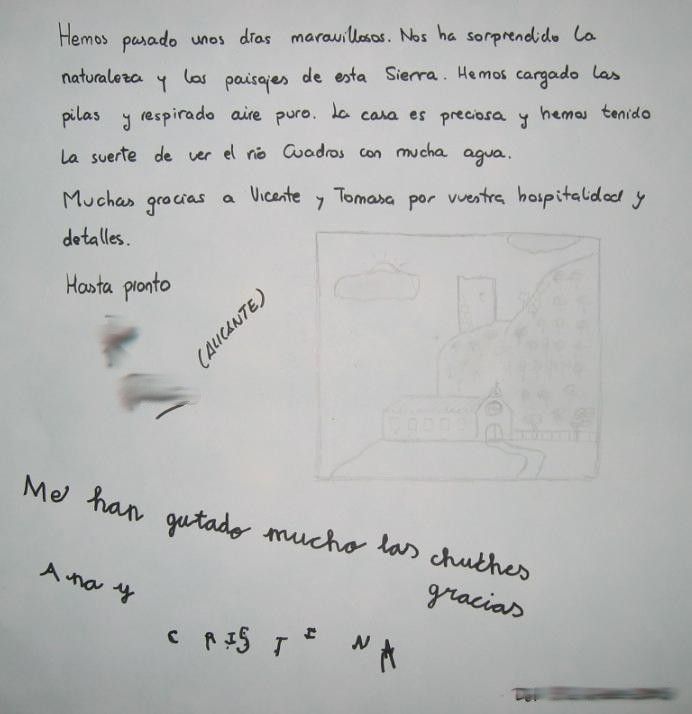 Hemos pasado unos días maravillosos. Nos ha sorprendido la
naturaleza y los paisajes de esta Sierra. Hemos cargado las
pilas y respirado aire puro. La casa es preciosa y hemos tenido
la suerte de ver el río Cuadros con mucha agua.
Muchas gracias a Vicente y Tomasa por vuestra hospitalidad y
detalles.
Hasta pronto
(ALICANTE)
Me han gutado mucho las chuches
gracias
Ana y
CRISTINA